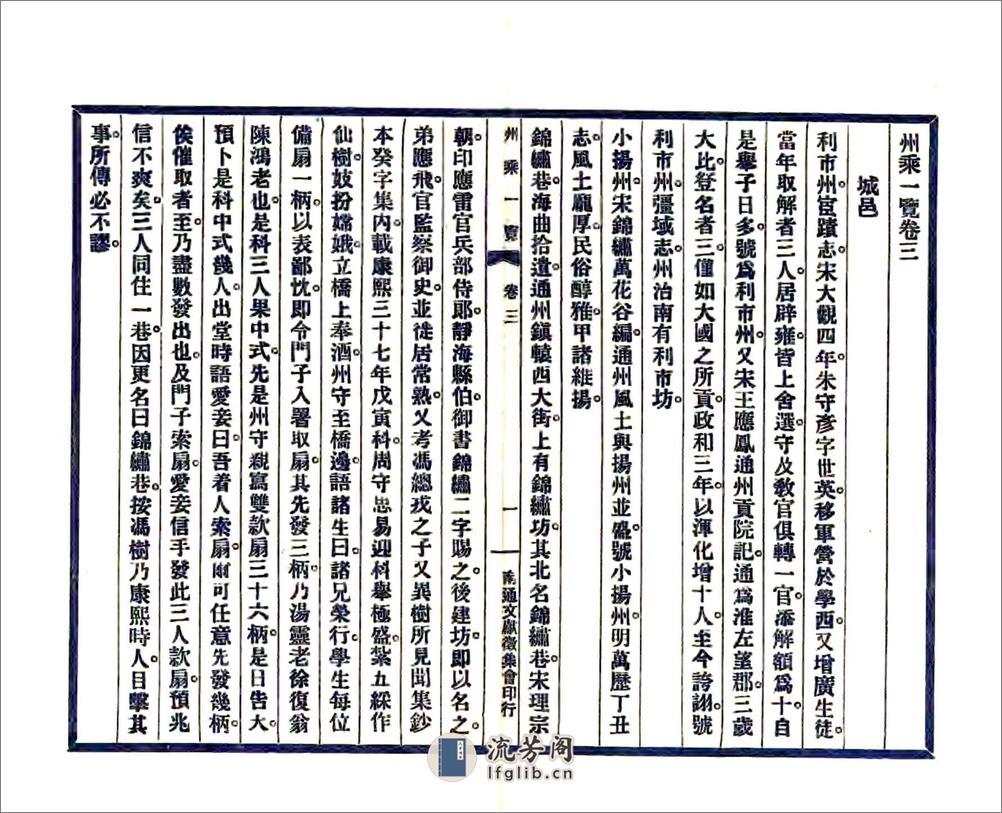 州乘一覽卷三
城邑
利市州。宦蹟志。宋大觀四年。朱守彥字世英。移軍營於學西。又增廣生徒。
當年取解者三人。居辟雍。皆上舍選。守及敎官俱轉一官。添解額爲十。自
是舉子日多。號爲利市州。又宋王應鳳通州貢院記。通爲淮左望郡。三歲
大比。登名者三。僅如大國之所貢。政和三年。以渾化增十人。至今誇謝。號
利市州。彊域志。州治南有利市坊。
小揚州。宋錦繡萬花谷編。通州風土與揚州並盛。號小揚州。明萬歷丁丑
志。風土龐厚。民俗醇雅。甲諸維揚。
錦繡巷。海曲拾遺。通州鎭轅西大街。上有錦繡坊。其北名錦繡巷。宋理宗
州乘一覽 卷三 一 南通文獻徵集會印行
朝。印應雷官兵部侍郎。靜海縣伯。御書錦繡二字賜之。後建坊。即以名之。
弟應飛。官監察御史。並徙居常熟。又考馮總戎之子又異樹所見聞集鈔
本癸字集內。載康熙三十七年戊寅科。周守忠易迎科舉極盛。紮五綵作
仙樹。妓扮嫦娥。立橋上奉酒。州守至橋邊。語諸生曰。諸兄榮行。學生每位
備扇一柄。以表鄙忱。即令門子入署取扇。其先發三柄。乃湯靈老徐復翁
陳鴻老也。是科三人果中式。先是州守親寫雙款扇三十六柄。是日告天
預卜是科中式幾人。出堂時。語愛妾曰。吾着人索扇。爾可任意先發幾柄。
俟催取者至。乃盡數發出也。及門子索扇。愛妾信手發此三人款扇。預兆
信不爽矣。三人同住一巷。因更名曰錦繡巷。按馮樹乃康熙時人。目擊其
事。所傳必不謬。
流芳阁
lfglib.cn